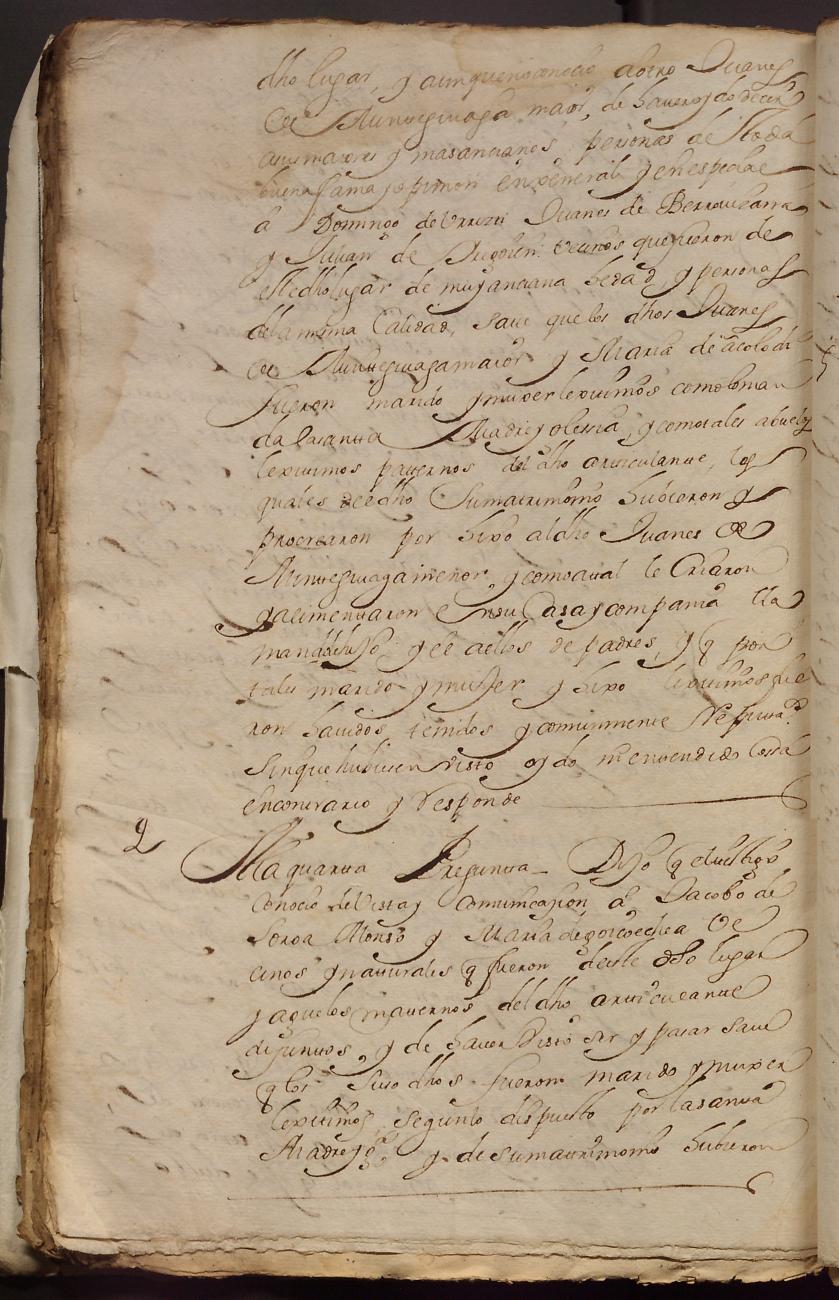 dho lugar, y aunque no conocio a otro Juanes
de Aurtegivaga maior, de haver oydo decir
a sus maiores y mas ancianos personas de toda
buena fama y opinion en general y en especial
a Domingo de Urrizti Juanes de Berrouizarra
y Julian de vecinos que fueron de
este dho lugar de muy anciana hedad y personas
de la misma Calidad, save que los dhos Juanes
de maior y Maria de acolodi
fueron marido y muxer lexitimos como lo man
da la santa Madre yglessia, y como tales abuelos
lexitimos paternos del dho articulante, los
quales de el dho Su matrimonio hubieron y
procrearon por hixo al dho Juanes de
menor, y como a tal le Criaron
y alimentaron en su Casa y compania lla
mandole hijo, y el a ellos de padres, y q por
tales marido y mujer y hixo lexitimos fue
ron havidos, tenidos y comunmente Reputados
Sin que hubiesen visto oydo ni entendido Cossa
en contrario y Responde
2 A la quarta Pregunta - Dijo q el testigo
conocio de Vista y comunicazion a Jacobo de
Soroa Alonso y Maria de goicoechea Ve
cinos y naturales q fueron deeste dho lugar
y aguelos maternos del dho articulante
difuntos, y de haver Visto ser y pasar save
q los Suso dhos fueron marido y muxer
lexitimos, segun lo dispuesto por la santa
Madre yga. y de su matrimonio hubieron